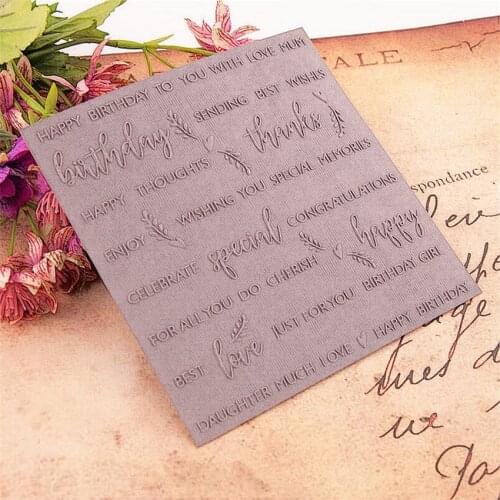 HAPPY BIRTHDAY TO YOU WITH LOVE MUM
birthday SENDING BEST WISHES
HAPPY THOUGHTS thanks
ENJOY WISHING YOU SPECIAL MEMORIES
CELEBRATE special CONGRATULATIONS
FOR ALL YOU DO CHERISH happy
BEST love JUST FOR YOU BIRTHDAY GIRL
DAUGHTER MUCH LOVE ♡ HAPPY BIRTHDAY
TALE
spondance